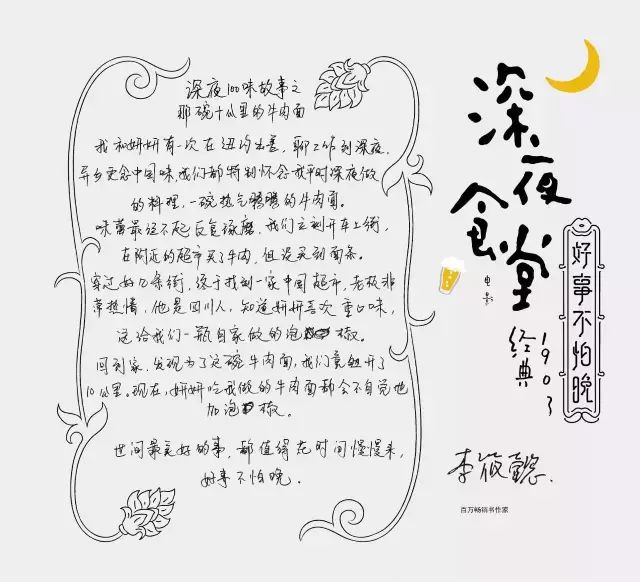 深夜100味故事之
那碗十公里的牛肉面
我和妍妍有一次在纽约出差，聊工作到深夜.
异乡更念中国味，我们都特别怀念我平时深夜做
的料理，一碗热气腾腾的牛肉面。
味蕾最经不起反复琢磨，我们立刻开车上街，
在附近的超市买了牛肉，但没买到面条。
穿过好几条街，终于找到一家中国超市，老板非
常热情，他是四川人，知道妍妍喜欢重口味，
送给我们一瓶自家做的泡椒。
回到家，发现为了这碗牛肉面，我们竟然开了
10公里。现在，妍妍吃我做的牛肉面都会不自觉地
加泡椒。
世间最美好的事，都值得在时间慢慢来，
好事不怕晚。
深夜食堂
电影
好事不怕晚
经典1903
李筱懿
百万畅销书作家